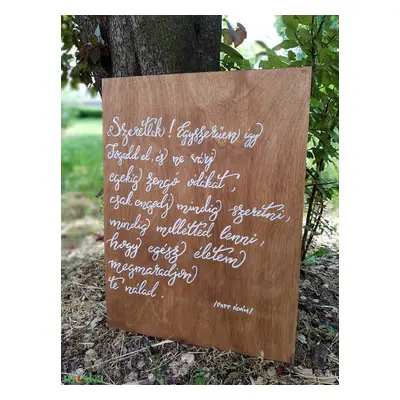 Szeretlek! Egyszerűen így
Fogadd el, és ne várj
egekig zengő ódákat,
csak engedj mindig szeretni,
mindig melletted lenni,
hogy egész életem
megmaradjon
te nálad.
/PAPP ÁDÁM/